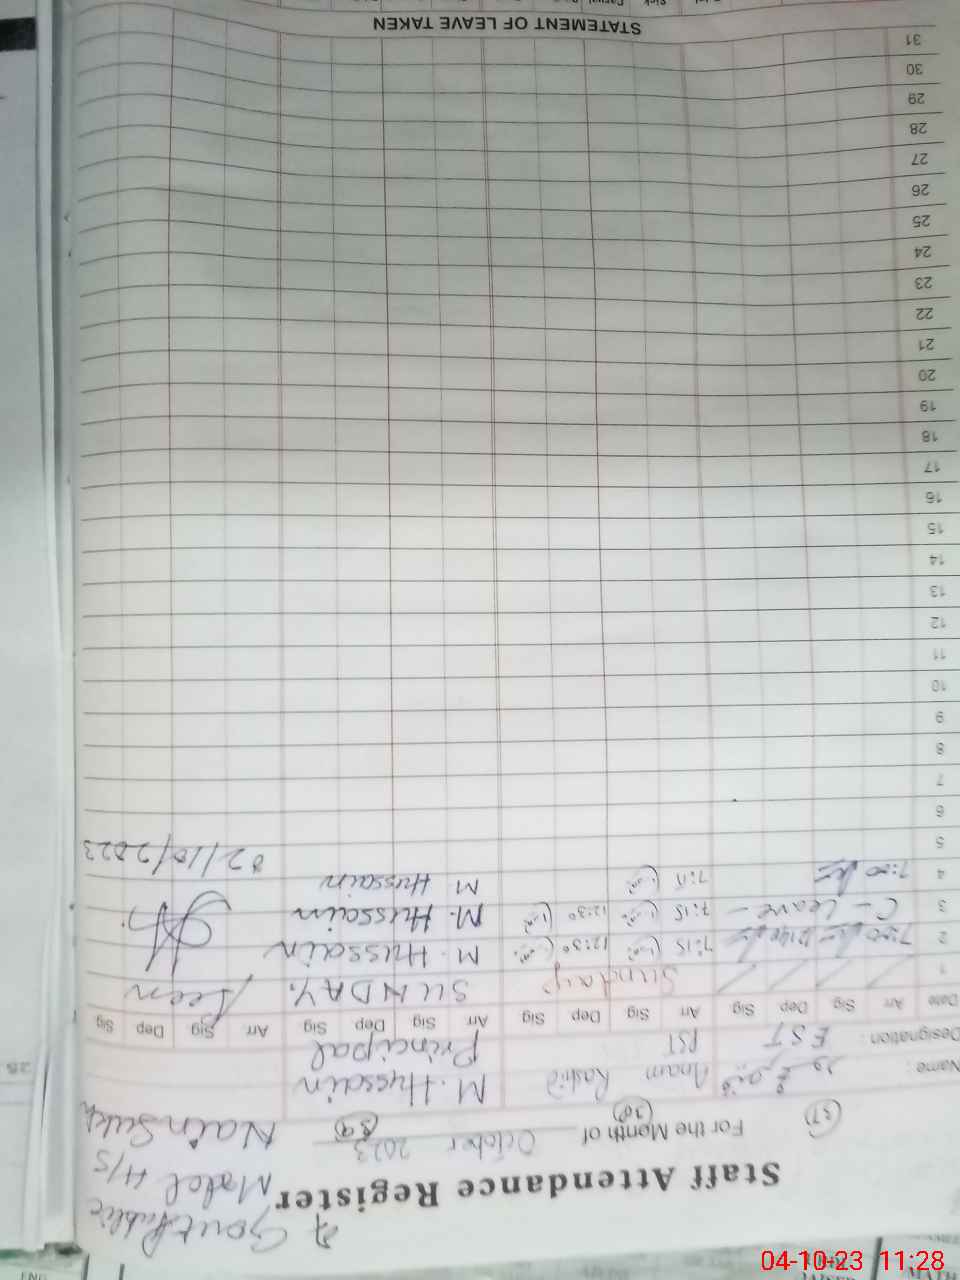 Staff Attendance Register
Govt Public
Model H/S
Nain Sukh
For the Month of October 2023
(37) (38) (39)
Name: Anam Rashid M. Hussain
Designation: EST PST Principal
Date Arr Sig Dep Sig Arr Sig Dep Sig Arr Sig Dep Sig Arr Sig Dep Sig
1 Sunday SUNDAY. Seen
2 7:00 12:40 7:15 12:30 M. Hussain
3 C - Leave - 7:15 12:30 M. Hussain
4 7:00 7:15 M. Hussain 02/10/2023
5
6
7
8
9
10
11
12
13
14
15
16
17
18
19
20
21
22
23
24
25
26
27
28
29
30
31
STATEMENT OF LEAVE TAKEN
04-10-23 11:28